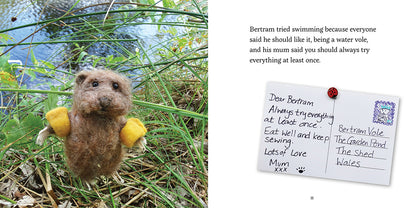 Bertram tried swimming because everyone
said he should like it, being a water vole,
and his mum said you should always try
everything at least once.
Dear Bertram
Always try everything
at least once.
Eat well and keep
sewing.
Lots of love
Mum
xxx
Bertram Vole
The Garden Pond
The Shed
Wales